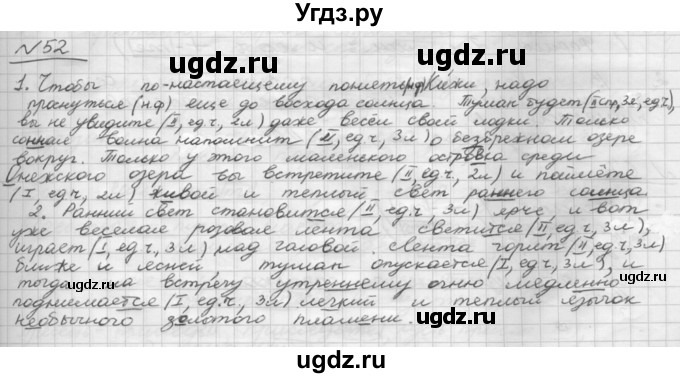 Угдз.ру
N 52
1. Чтобы по-настаещему понять(нф) Кижи, надо
проснуться (н.ф) еще до восхода солнца. Туман будет (II спр, 3л, ед.ч),
вы не увидите (II, ед.ч, 2л) даже весел своей лодки. Только
сонная волна напомнит (II, ед.ч, 3л) о безбрежном озере
вокруг. Только у этого маленького островка среди
Онежского озера вы встретите (II, ед.ч, 2л) и поймёте
(I, ед.ч, 2л) живой и теплый свет раннего солнца
2. Ранний свет становится (I, ед.ч, 3л) ярче, и вот
уже веселая розовая лента светится (II, ед.ч, 3л),
играет (I, ед.ч, 3л) над головой. Лента горит (II, ед.ч, 3л)
ближе и ясней туман опускается (I, ед.ч, 3л), и
тогда на встречу утреннему огню медленно
поднимается (I, ед.ч, 3л) легкий и теплый язычок
необычного золотого пламени.
ugdz.ru
ugdz.ru
ugdz.ru
ugdz.ru
ugdz.ru
ugdz.ru
ugdz.ru
ugdz.ru
ugdz.ru